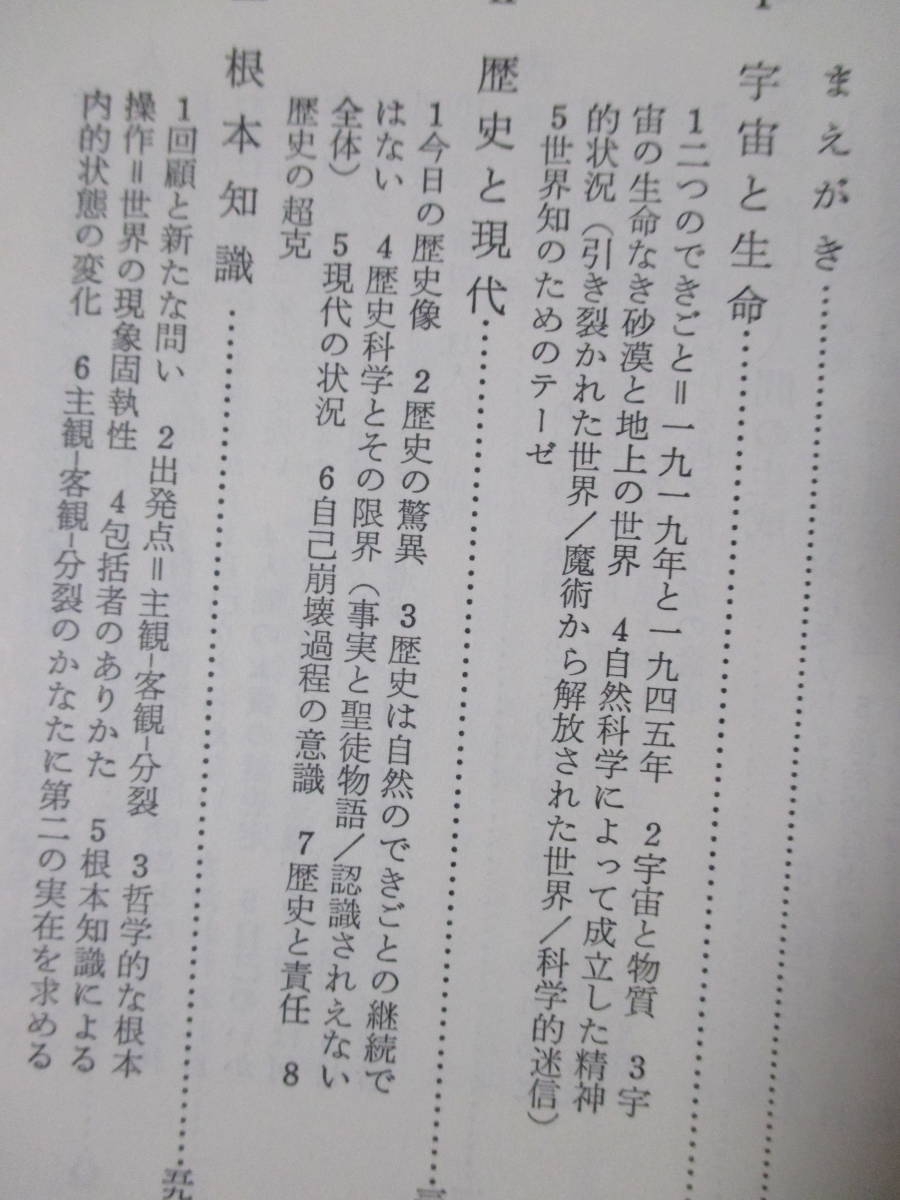 まえがき
I 宇宙と生命
1二つのできごと＝一九一九年と一九四五年 2宇宙と物質 3宇
宙の生命なき砂漠と地上の世界 4自然科学によって成立した精神
的状況（引き裂かれた世界/魔術から解放された世界/科学的迷信）
5世界知のためのテーゼ
II 歴史と現代
1今日の歴史像 2歴史の驚異 3歴史は自然のできごとの継続で
はない 4歴史科学とその限界（事実と聖徒物語/認識されえない
全体） 5現代の状況 6自己崩壊過程の意識 7歴史と責任 8
歴史の超克
根本知識 五九
1回顧と新たな問い 2出発点＝主観-客観-分裂 3哲学的な根本
操作＝世界の現象固執性 4包括者のありかた 5根本知識による
内的状態の変化 6主観-客観-分裂のかなたに第二の実在を求める